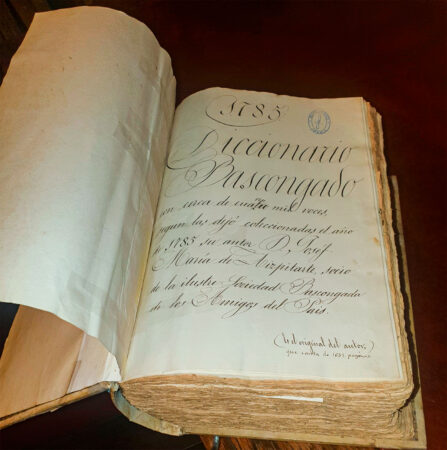 1785
Diccionario
Bascongado
con cerca de cuatro mil voces,
segun las dejó coleccionadas el año
de 1785 su autor D, Josef
María de Aizpitarte, socio
de la ilustre Sociedad Bascongada
de los Amigos del País.
(Es el original del autor,
que consta de 1033 páginas